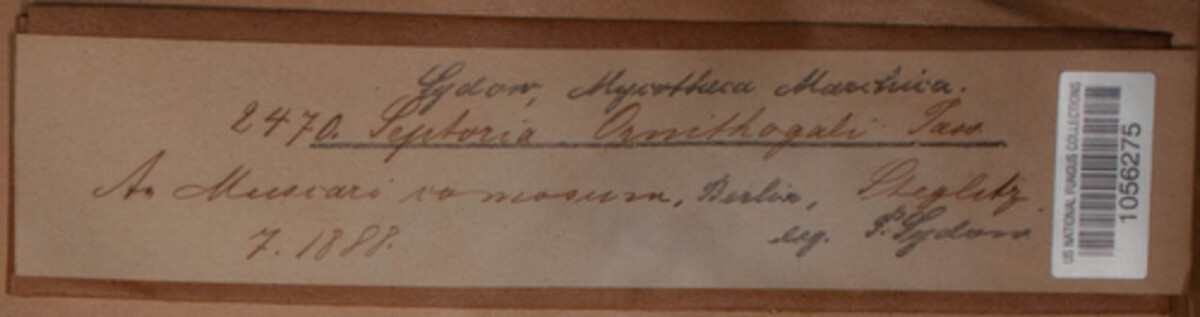 Sydow, Mycotheca Marchica.
2470. Septoria Ornithogali Pass.
An Muscari comosum, Berlin, Steglitz.
7. 1888.
leg. P. Sydow
US NATIONAL FUNGUS COLLECTIONS
1056275